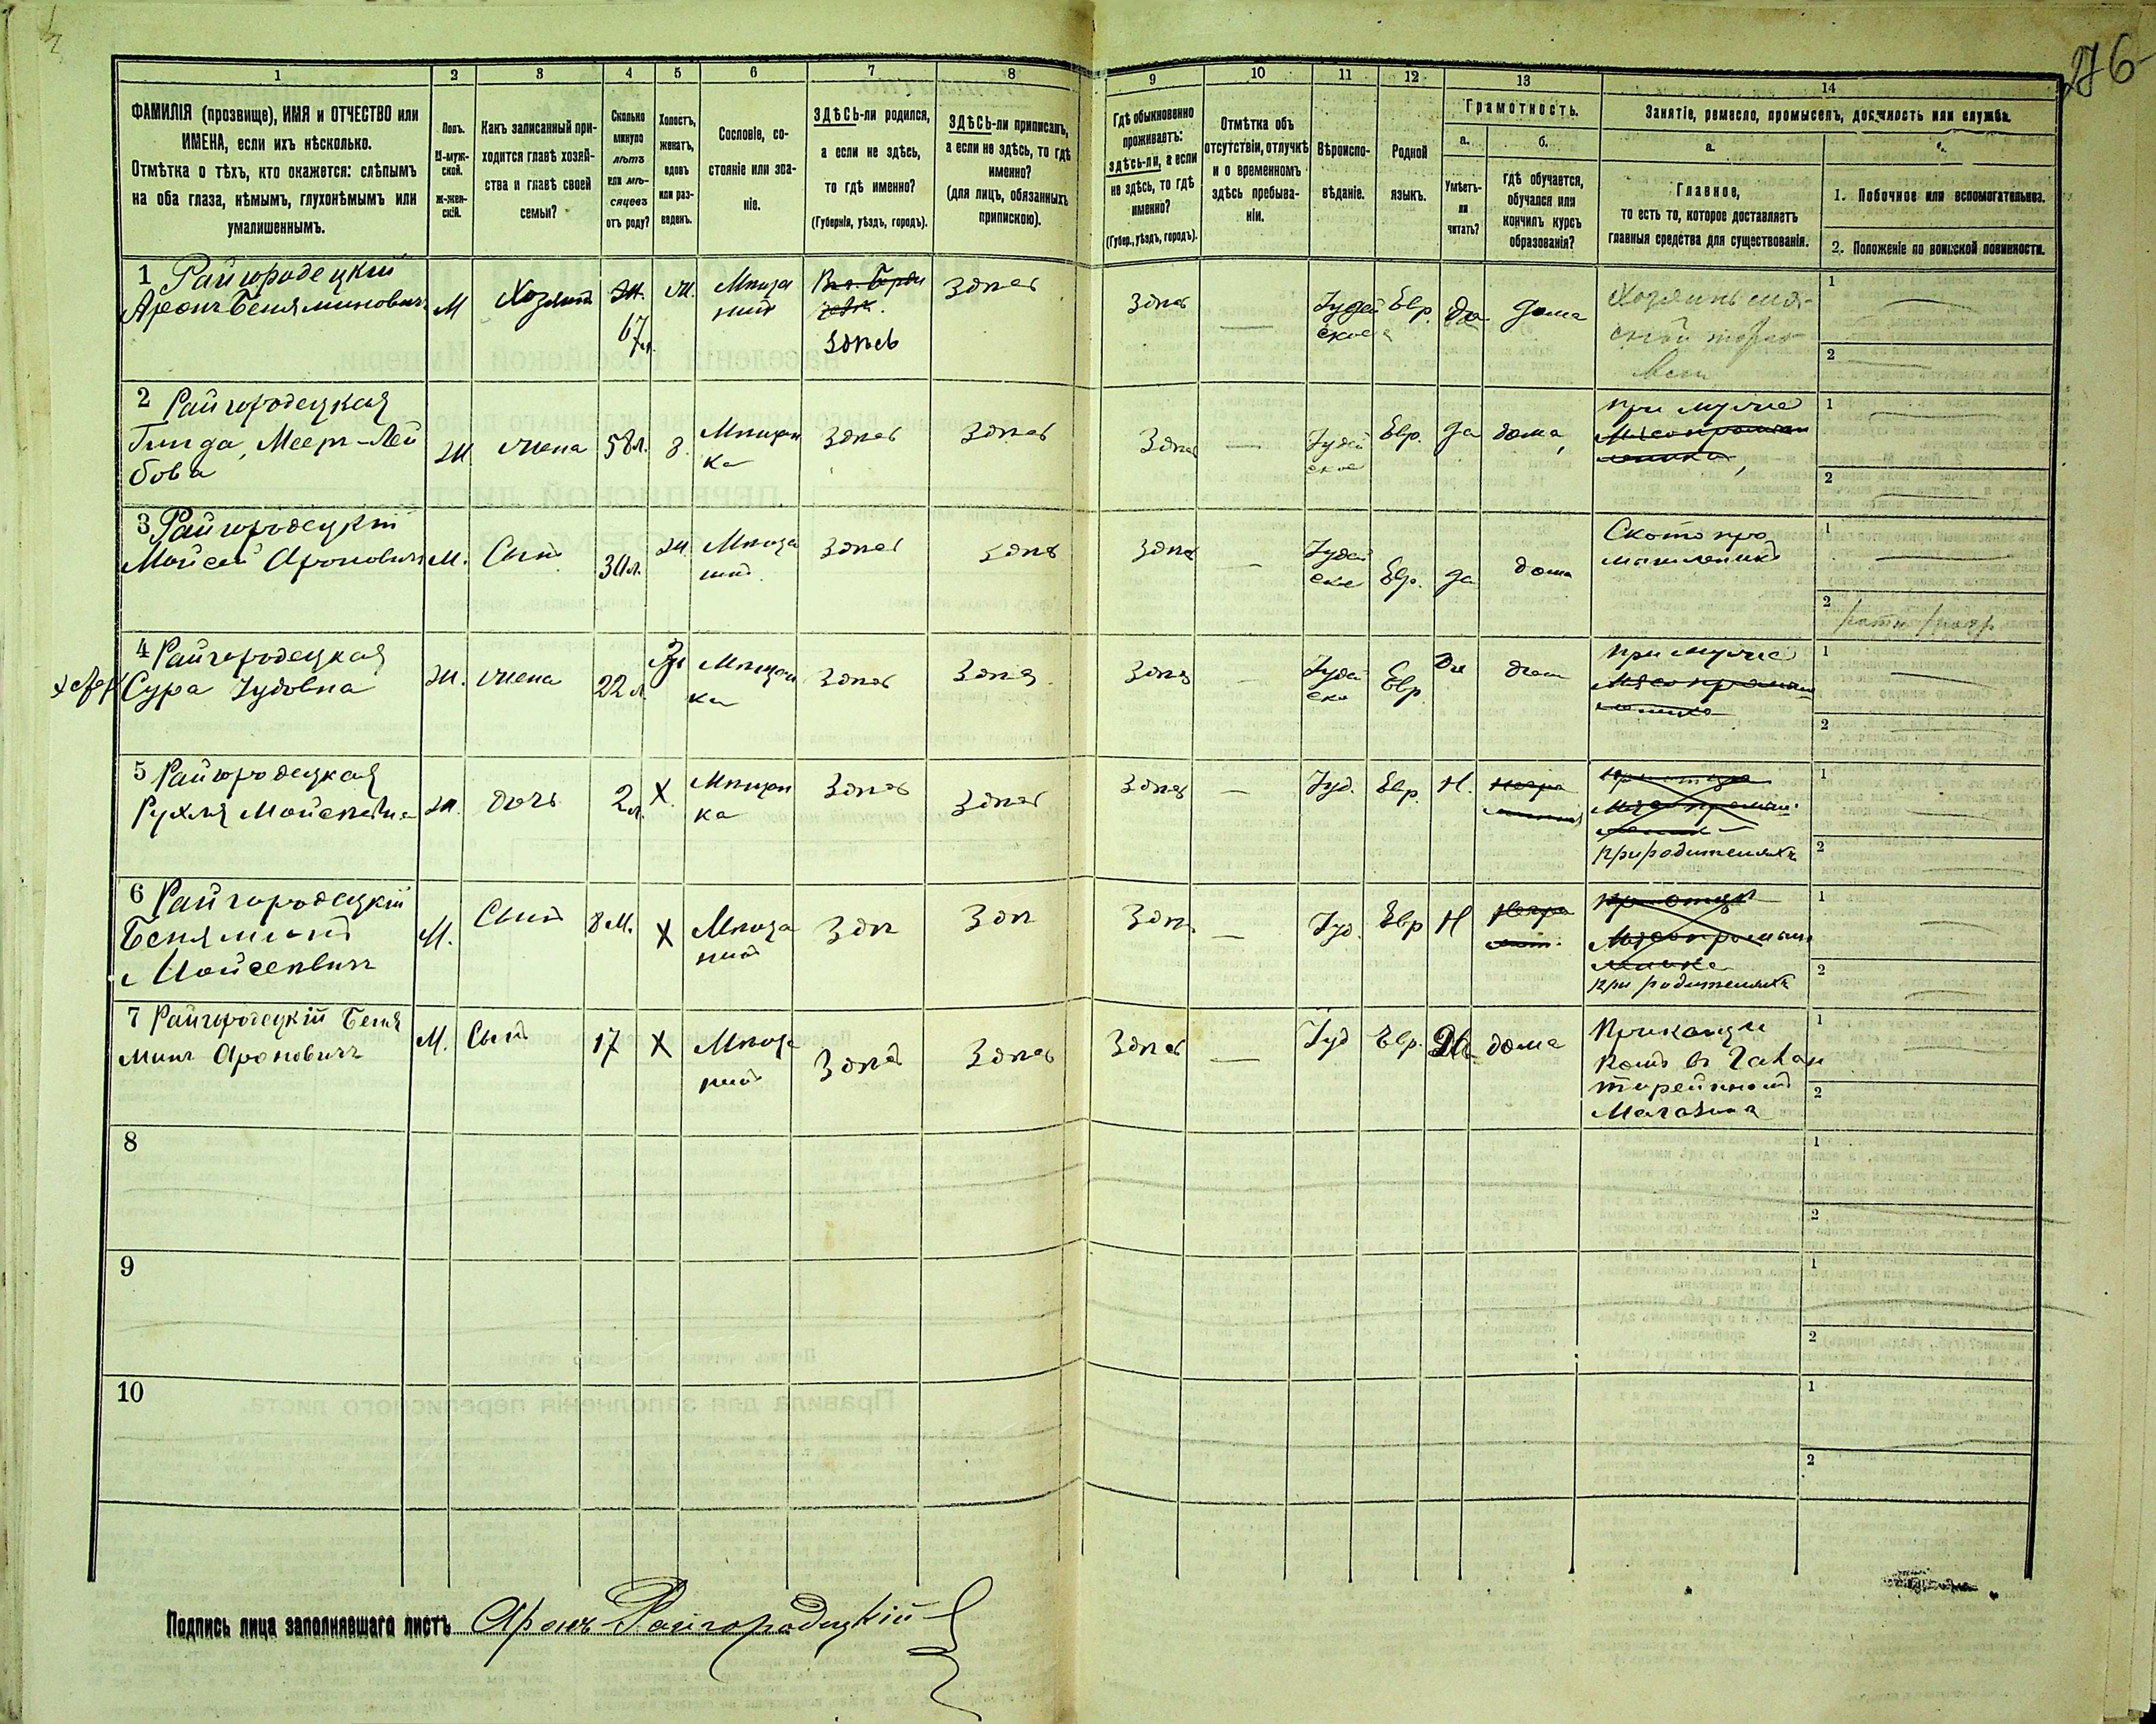 276
1 2 3 4 5 6 7 8 9 10 11 12 13 14
ФАМИЛІЯ (прозвище), ИМЯ и ОТЧЕСТВО или
ИМЕНА, если ихъ нѣсколько.
Отмѣтка о тѣхъ, кто окажется: слѣпымъ
на оба глаза, нѣмымъ, глухонѣмымъ или
умалишеннымъ.
Полъ.
М-муж-
ской.
Ж-жен-
скій.
Какъ записанный при-
ходится главѣ хозяй-
ства и главѣ своей
семьи?
Сколько
минуло
лѣтъ
или мѣ-
сяцевъ
отъ роду?
Холостъ,
женатъ,
вдовъ
или раз-
веденъ.
Сословіе, со-
стояніе или зва-
ніе.
ЗДѢСЬ-ли родился,
а если не здѣсь,
то гдѣ именно?
(Губернія, уѣздъ, городъ).
ЗДѢСЬ-ли приписанъ,
а если не здѣсь, то гдѣ
именно?
(для лицъ, обязанныхъ
припискою).
Гдѣ обыкновенно
проживаетъ:
здѣсь-ли, а если
не здѣсь, то гдѣ
именно?
(Губер., уѣздъ, городъ).
Отмѣтка объ
отсутствіи, отлучкѣ
и о временномъ
здѣсь пребыва-
ніи.
Вѣроиспо-
вѣданіе.
Родной
языкъ.
Грамотность.
а.
Умѣетъ-
ли
читать?
б.
гдѣ обучается,
обучался или
кончилъ курсъ
образованія?
Занятіе, ремесло, промыселъ, должность или служба.
а.
Главное,
то есть то, которое доставляетъ
главныя средства для существованія.
1. Побочное или вспомогательное.
2. Положеніе по воинской повинности.
1 Райгородецкій
Аронъ Беняминовичъ М Хозяинъ 67 л. Мѣща
нинъ Здѣсь Здѣсь Здѣсь — Іудей
ское Евр. Да Дома
1
2
2 Райгородецкая
Гинда Мееръ-Лей
бова Ж жена 58 л. З. Мѣщан
ка Здѣсь Здѣсь Здѣсь — Іудей
ское Евр. Да дома при мужѣ
1
2
3 Райгородецкій
Мойсей Ароновичъ М. Сынъ 30 л. Ж Мѣща
нинъ Здѣсь Здѣсь Здѣсь — Іудей
ское Евр. Да дома Скотопро
мышленикъ
1
2
4 Райгородецкая
Сура Іудовна Ж. жена 22 л. Мѣщан
ка Здѣсь Здѣсь Здѣсь — Іудей
ско Евр. Да дом при мужѣ
1
2
5 Райгородецкая
Рухля Мойсеевна Ж. дочь 2 л. Х. Мѣщан
ка Здѣсь Здѣсь Здѣсь — Іуд. Евр. Н. при родителяхъ
1
2
6 Райгородецкій
Беняминъ
Мойсеевичъ М. Сынъ 8 м. Х Мѣща
нинъ Здѣ Здѣ Здѣ — Іуд. Евр Н при родителяхъ
1
2
7 Райгородецкій Беня
минъ Ароновичъ М. Сынъ 17 Х Мѣща
нинъ Здѣсь Здѣсь Здѣсь — Іуд Евр. Да дома Приказчи
комъ въ Галан
терейномъ
Магазинѣ
1
2
8
1
2
9
1
2
10
1
2
Подпись лица заполнявшаго листъ Аронъ Райгородецкій